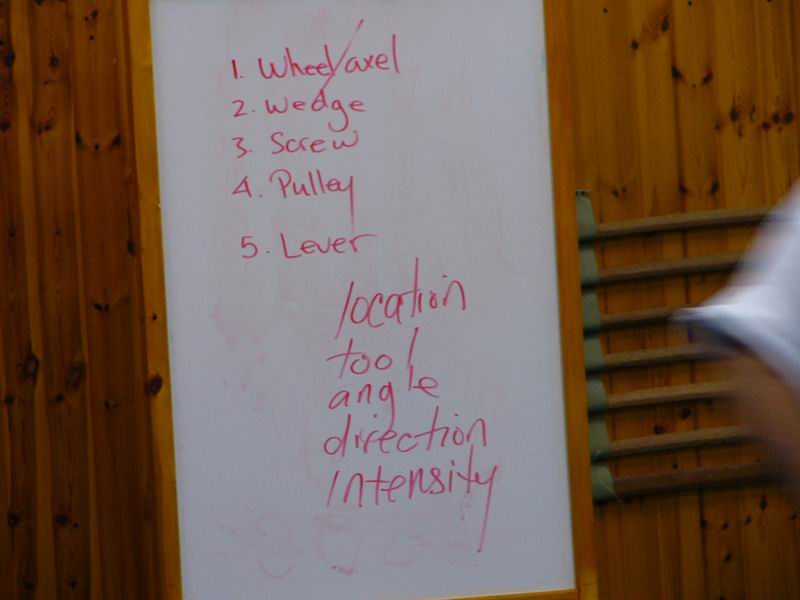 1. Wheel/axel
2. Wedge
3. Screw
4. Pulley
5. Lever
location
tool
angle
direction
intensity